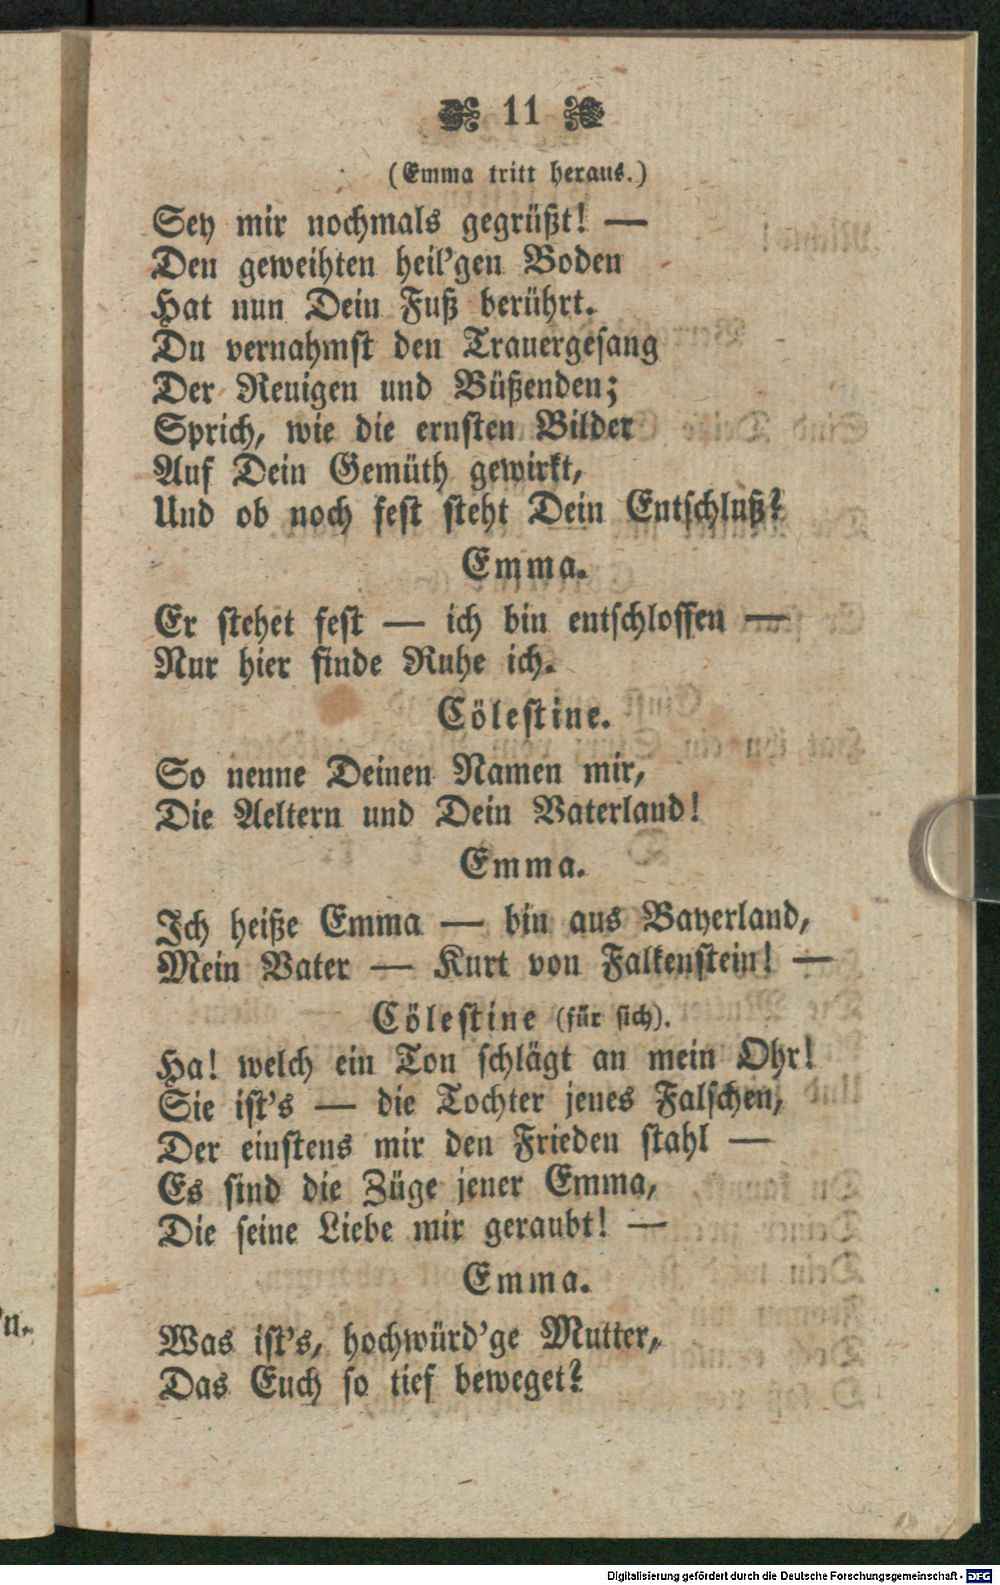 11
(Emma tritt heraus.)
Sey mir nochmals gegrüßt! —
Den geweihten heil'gen Boden
Hat nun Dein Fuß berührt.
Du vernahmst den Trauergesang
Der Reuigen und Büßenden;
Sprich, wie die ernsten Bilder
Auf Dein Gemüth gewirkt,
Und ob noch fest steht Dein Entschluß?
Emma.
Er stehet fest — ich bin entschlossen —
Nur hier finde Ruhe ich.
Cölestine.
So nenne Deinen Namen mir,
Die Aeltern und Dein Vaterland!
Emma.
Ich heiße Emma — bin aus Bayerland,
Mein Vater — Kurt von Falkenstein! —
Cölestine (für sich).
Ha! welch ein Ton schlägt an mein Ohr!
Sie ist's — die Tochter jenes Falschen,
Der einstens mir den Frieden stahl —
Es sind die Züge jener Emma,
Die seine Liebe mir geraubt! —
Emma.
Was ist's, hochwürd'ge Mutter,
Das Euch so tief beweget?
Digitalisierung gefördert durch die Deutsche Forschungsgemeinschaft - DFG